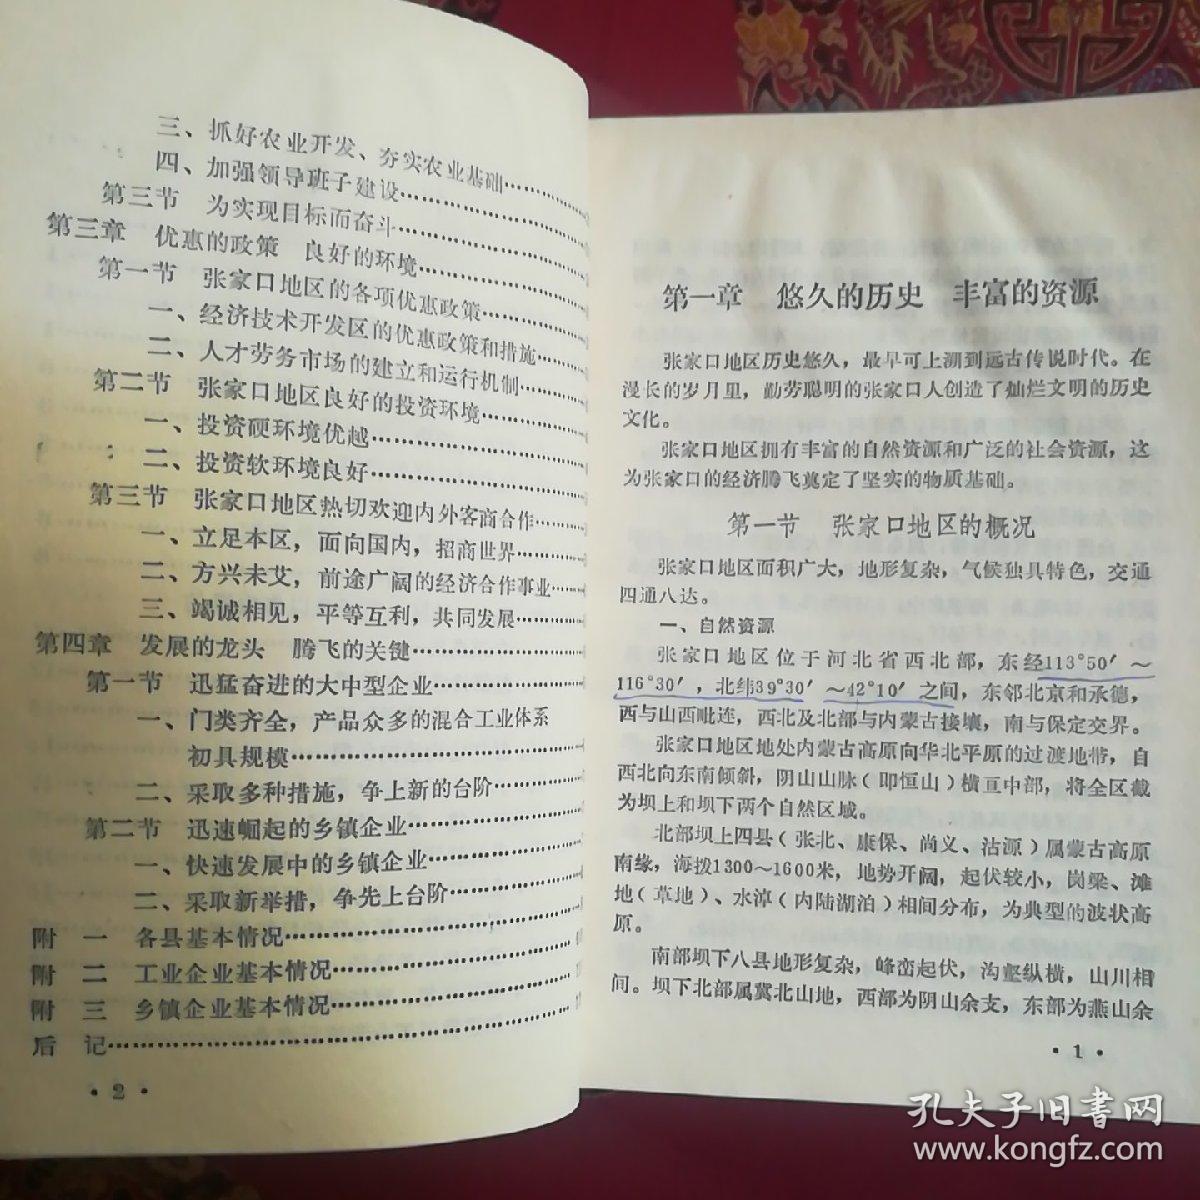 三、抓好农业开发、夯实农业基础……
四、加强领导班子建设……
第三节 为实现目标而奋斗……
第三章 优惠的政策 良好的环境……
第一节 张家口地区的各项优惠政策……
一、经济技术开发区的优惠政策和措施……
二、人才劳务市场的建立和运行机制……
第二节 张家口地区良好的投资环境……
一、投资硬环境优越……
二、投资软环境良好……
第三节 张家口地区热切欢迎内外客商合作……
一、立足本区，面向国内，招商世界……
二、方兴未艾，前途广阔的经济合作事业……
三、竭诚相见，平等互利，共同发展……
第四章 发展的龙头 腾飞的关键……
第一节 迅猛奋进的大中型企业……
一、门类齐全，产品众多的混合工业体系
初具规模……
二、采取多种措施，争上新的台阶……
第二节 迅速崛起的乡镇企业……
一、快速发展中的乡镇企业……
二、采取新举措，争先上台阶……
附 一 各县基本情况……
附 二 工业企业基本情况……
附 三 乡镇企业基本情况……
后 记……
·2·
第一章 悠久的历史 丰富的资源
张家口地区历史悠久，最早可上溯到远古传说时代。在
漫长的岁月里，勤劳聪明的张家口人创造了灿烂文明的历史
文化。
张家口地区拥有丰富的自然资源和广泛的社会资源，这
为张家口的经济腾飞奠定了坚实的物质基础。
第一节 张家口地区的概况
张家口地区面积广大，地形复杂，气候独具特色，交通
四通八达。
一、自然资源
张家口地区位于河北省西北部，东经113°50′～
116°30′，北纬39°30′～42°10′之间，东邻北京和承德，
西与山西毗连，西北及北部与内蒙古接壤，南与保定交界。
张家口地区地处内蒙古高原向华北平原的过渡地带，自
西北向东南倾斜，阴山山脉（即恒山）横亘中部，将全区截
为坝上和坝下两个自然区域。
北部坝上四县（张北、康保、尚义、沽源）属蒙古高原
南缘，海拨1300～1600米，地势开阔，起伏较小，岗梁、滩
地（草地）、水淖（内陆湖泊）相间分布，为典型的波状高
原。
南部坝下八县地形复杂，峰峦起伏，沟壑纵横，山川相
间。坝下北部属冀北山地，西部为阴山余支，东部为燕山余
·1·
孔夫子旧书网
www.kongfz.com